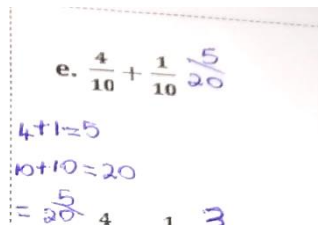 e. 4/10 + 1/10 5/20
4+1=5
10+10=20
= 5/20 4 1 3